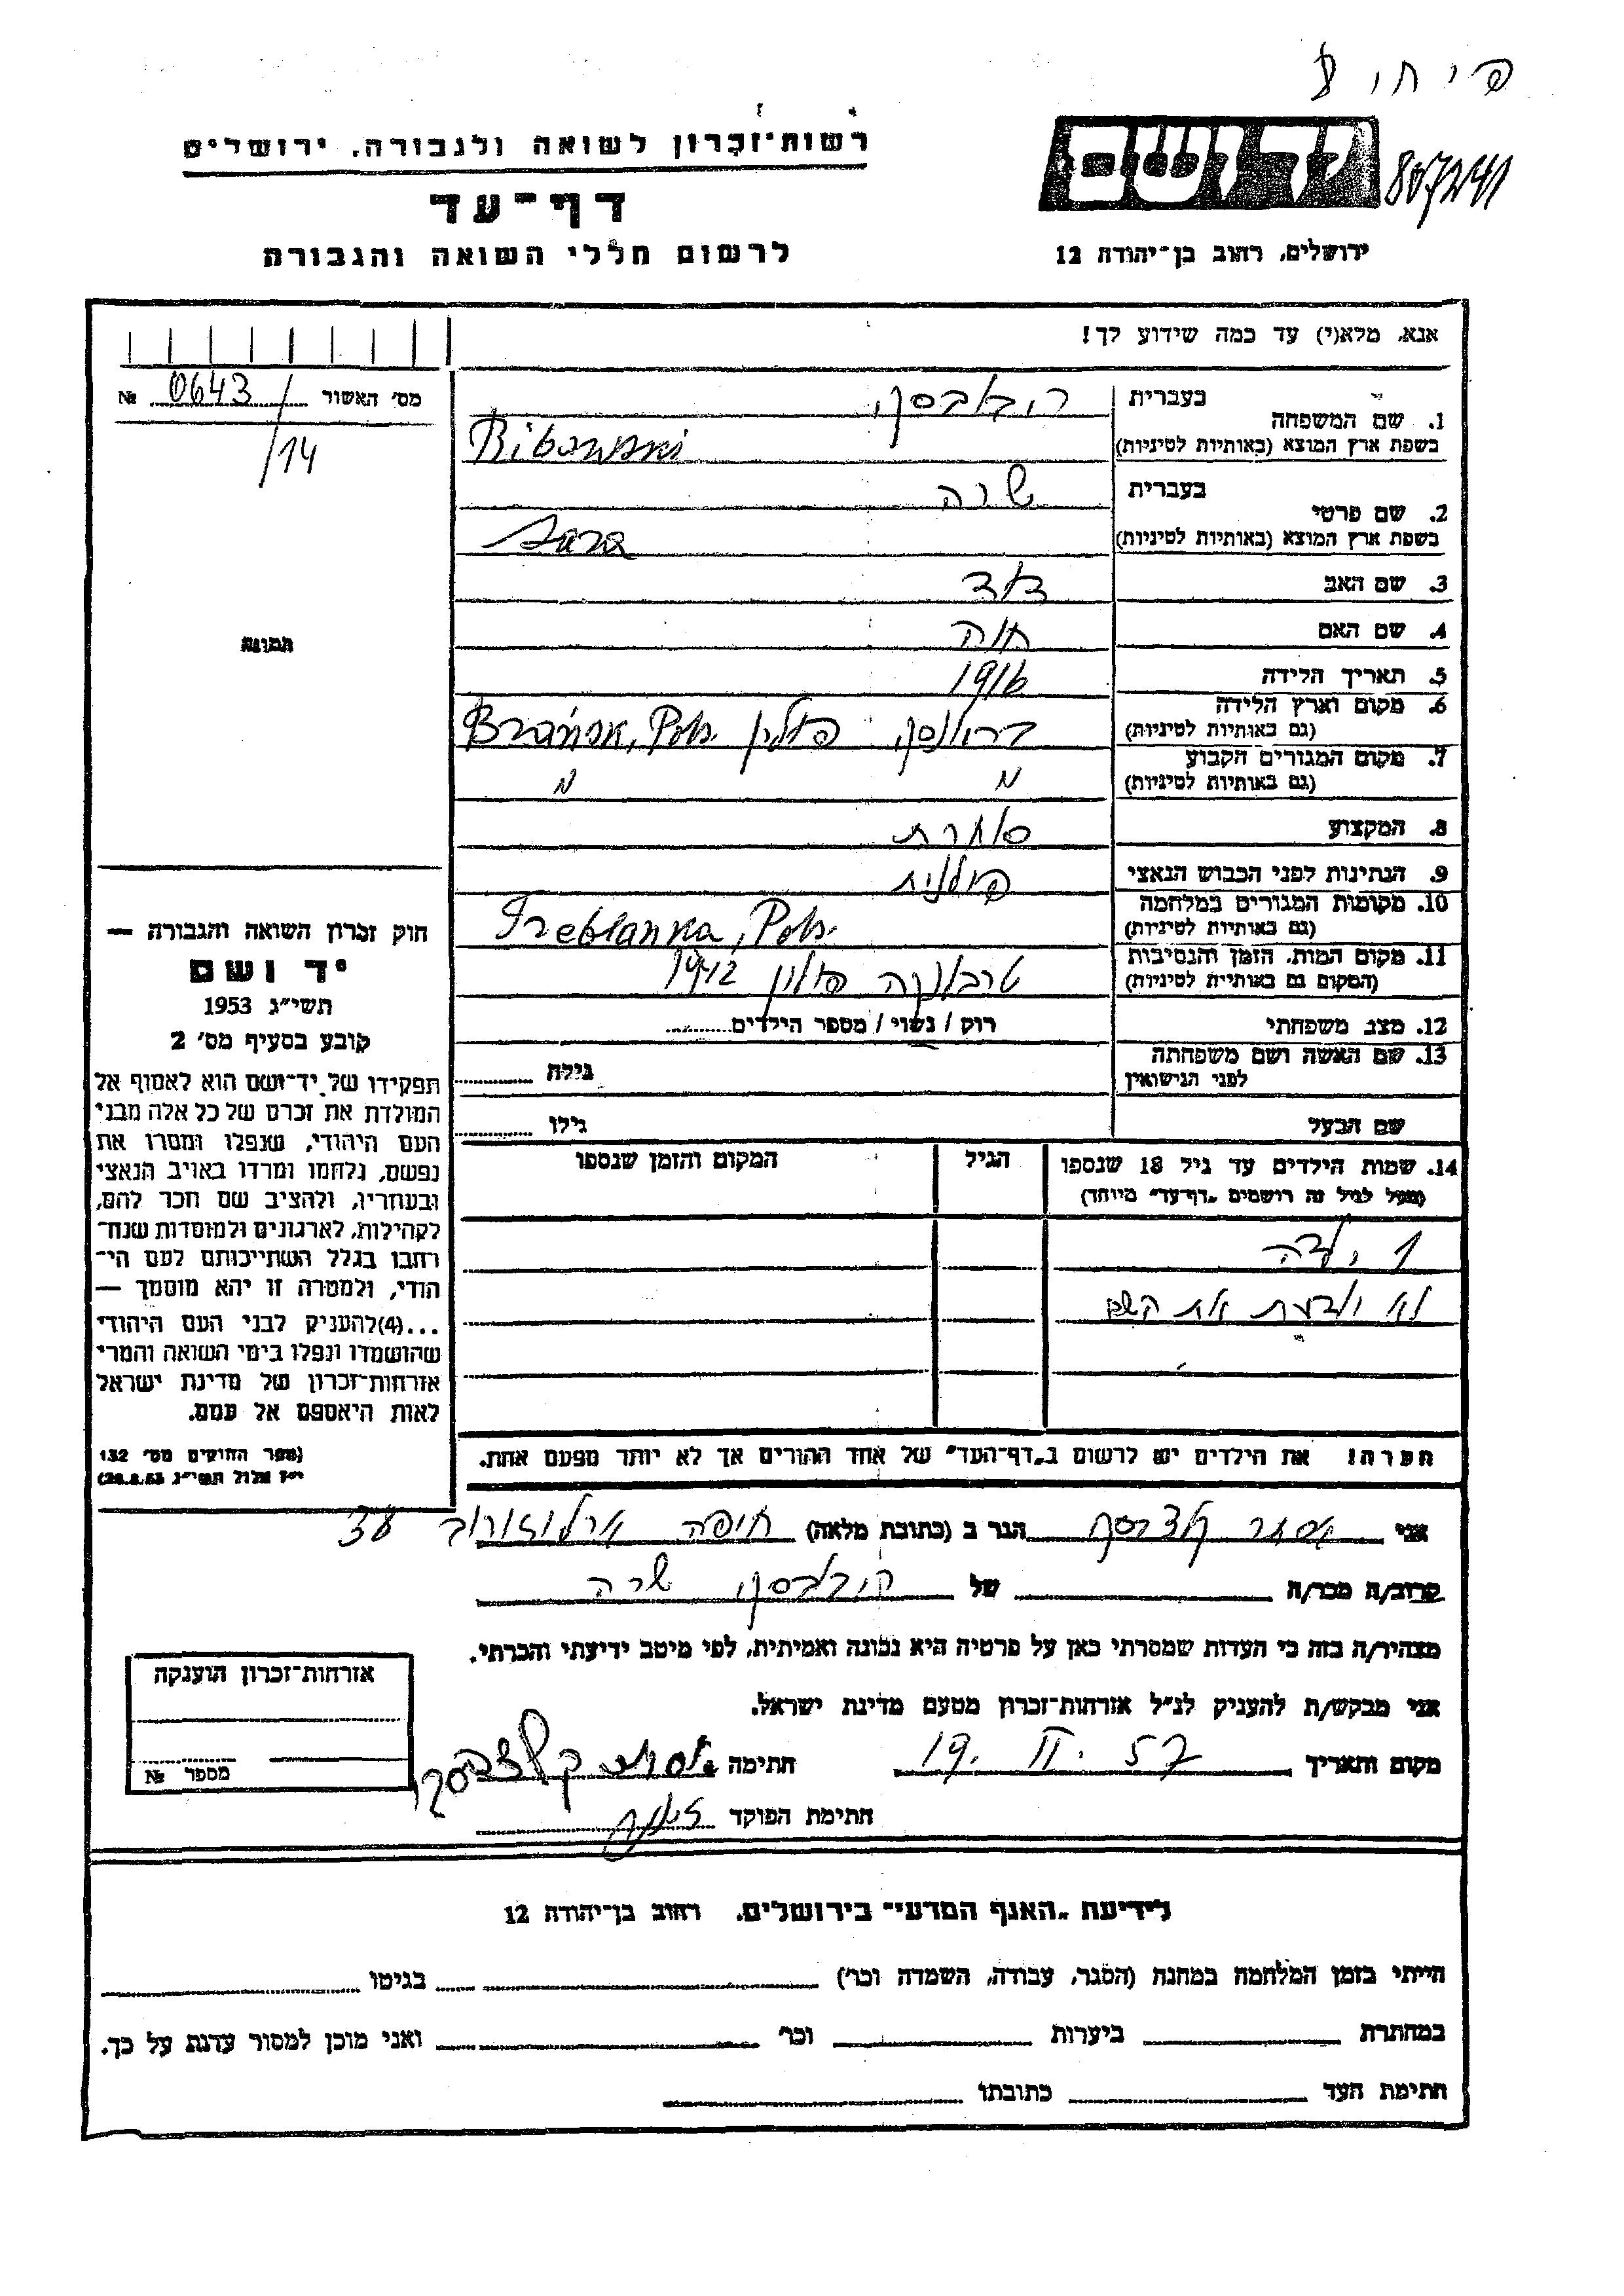 רשות־זכרון לשואה ולגבורה, ירושלים
דף־עד
לרשום חללי השואה והגבורה
יד ושם
ירושלים, רחוב בן־יהודה 12
אנא, מלא(י) עד כמה שידוע לך!
מס' האשור 0643 №
/14
תמונה
1. שם המשפחה
בעברית
בשפת ארץ המוצא (באותיות לטיניות) Ribowski
2. שם פרטי
בעברית שרה
בשפת ארץ המוצא (באותיות לטיניות) Sara
3. שם האב דוד
4. שם האם חוה
5. תאריך הלידה 1916
6. מקום וארץ הלידה
(גם באותיות לטיניות) פולין Brańsk, Pols.
7. מקום המגורים הקבוע
(גם באותיות לטיניות)
8. המקצוע סוחרת
9. הנתינות לפני הכבוש הנאצי פולנית
10. מקומות המגורים במלחמה
(גם באותיות לטיניות) Treblanka, Pols.
11. מקום המות, הזמן והנסיבות
(המקום גם באותיות לטיניות) טרבלנקה פולין 1942
12. מצב משפחתי רוק / נשוי / מספר הילדים
13. שם האשה ושם משפחתה
לפני הנישואין גילה
שם הבעל גילו
14. שמות הילדים עד גיל 18 שנספו
(מעל לגיל זה רושמים „דף־עד” מיוחד)
הגיל
המקום והזמן שנספו
1 ילדה
לא יודעת את השם
הערה! את הילדים יש לרשום ב„דף־העד” של אחד ההורים אך לא יותר מפעם אחת.
חוק זכרון השואה והגבורה —
יד ושם
תשי"ג 1953
קובע בסעיף מס' 2
תפקידו של יד־ושם הוא לאסוף אל
המולדת את זכרם של כל אלה מבני
העם היהודי, שנפלו ומסרו את
נפשם, נלחמו ומרדו באויב הנאצי
ובעוזריו, ולהציב שם וזכר להם,
לקהילות, לארגונים ולמוסדות שנח־
רבו בגלל השתייכותם לעם הי־
הודי, ולמטרה זו יהא מוסמך —
...(4) להעניק לבני העם היהודי
שהושמדו ונפלו בימי השואה והמרי
אזרחות־זכרון של מדינת ישראל
לאות היאספם אל עמם.
(ספר החוקים מס' 132
י"ז אלול תשי"ג 28.8.53)
אני אסתר הגר ב (כתובת מלאה) חיפה ארלוזורוב
קרוב/ה מכר/ה של שרה
מצהיר/ה בזה כי העדות שמסרתי כאן על פרטיה היא נכונה ואמיתית, לפי מיטב ידיעתי והכרתי.
אני מבקש/ת להעניק לנ"ל אזרחות־זכרון מטעם מדינת ישראל.
מקום ותאריך 19. II. 57 חתימה
חתימת הפוקד
אזרחות־זכרון הוענקה
מספר №
לידיעת „האגף המדעי” בירושלים, רחוב בן־יהודה 12
הייתי בזמן המלחמה במחנה (הסגר, עבודה, השמדה וכו') בגיטו
במחתרת ביערות וכו' ואני מוכן למסור עדות על כך.
חתימת העד כתובתו